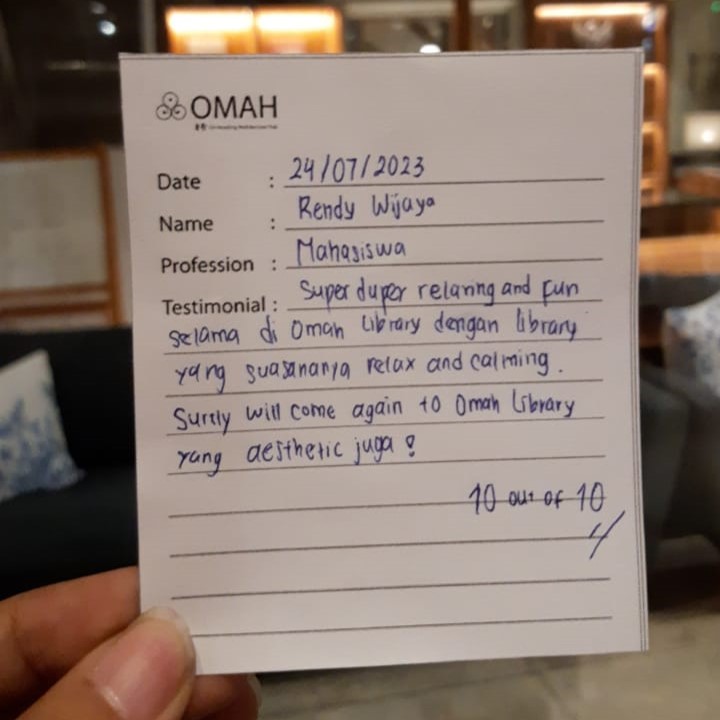 OMAH
Date : 24/07/2023
Name : Rendy Wijaya
Profession : Mahasiswa
Testimonial : Super duper relaxing and fun
selama di Omah Library dengan library
yang suasananya relax and calming.
Surely will come again to Omah Library
yang aesthetic juga!
10 out of 10